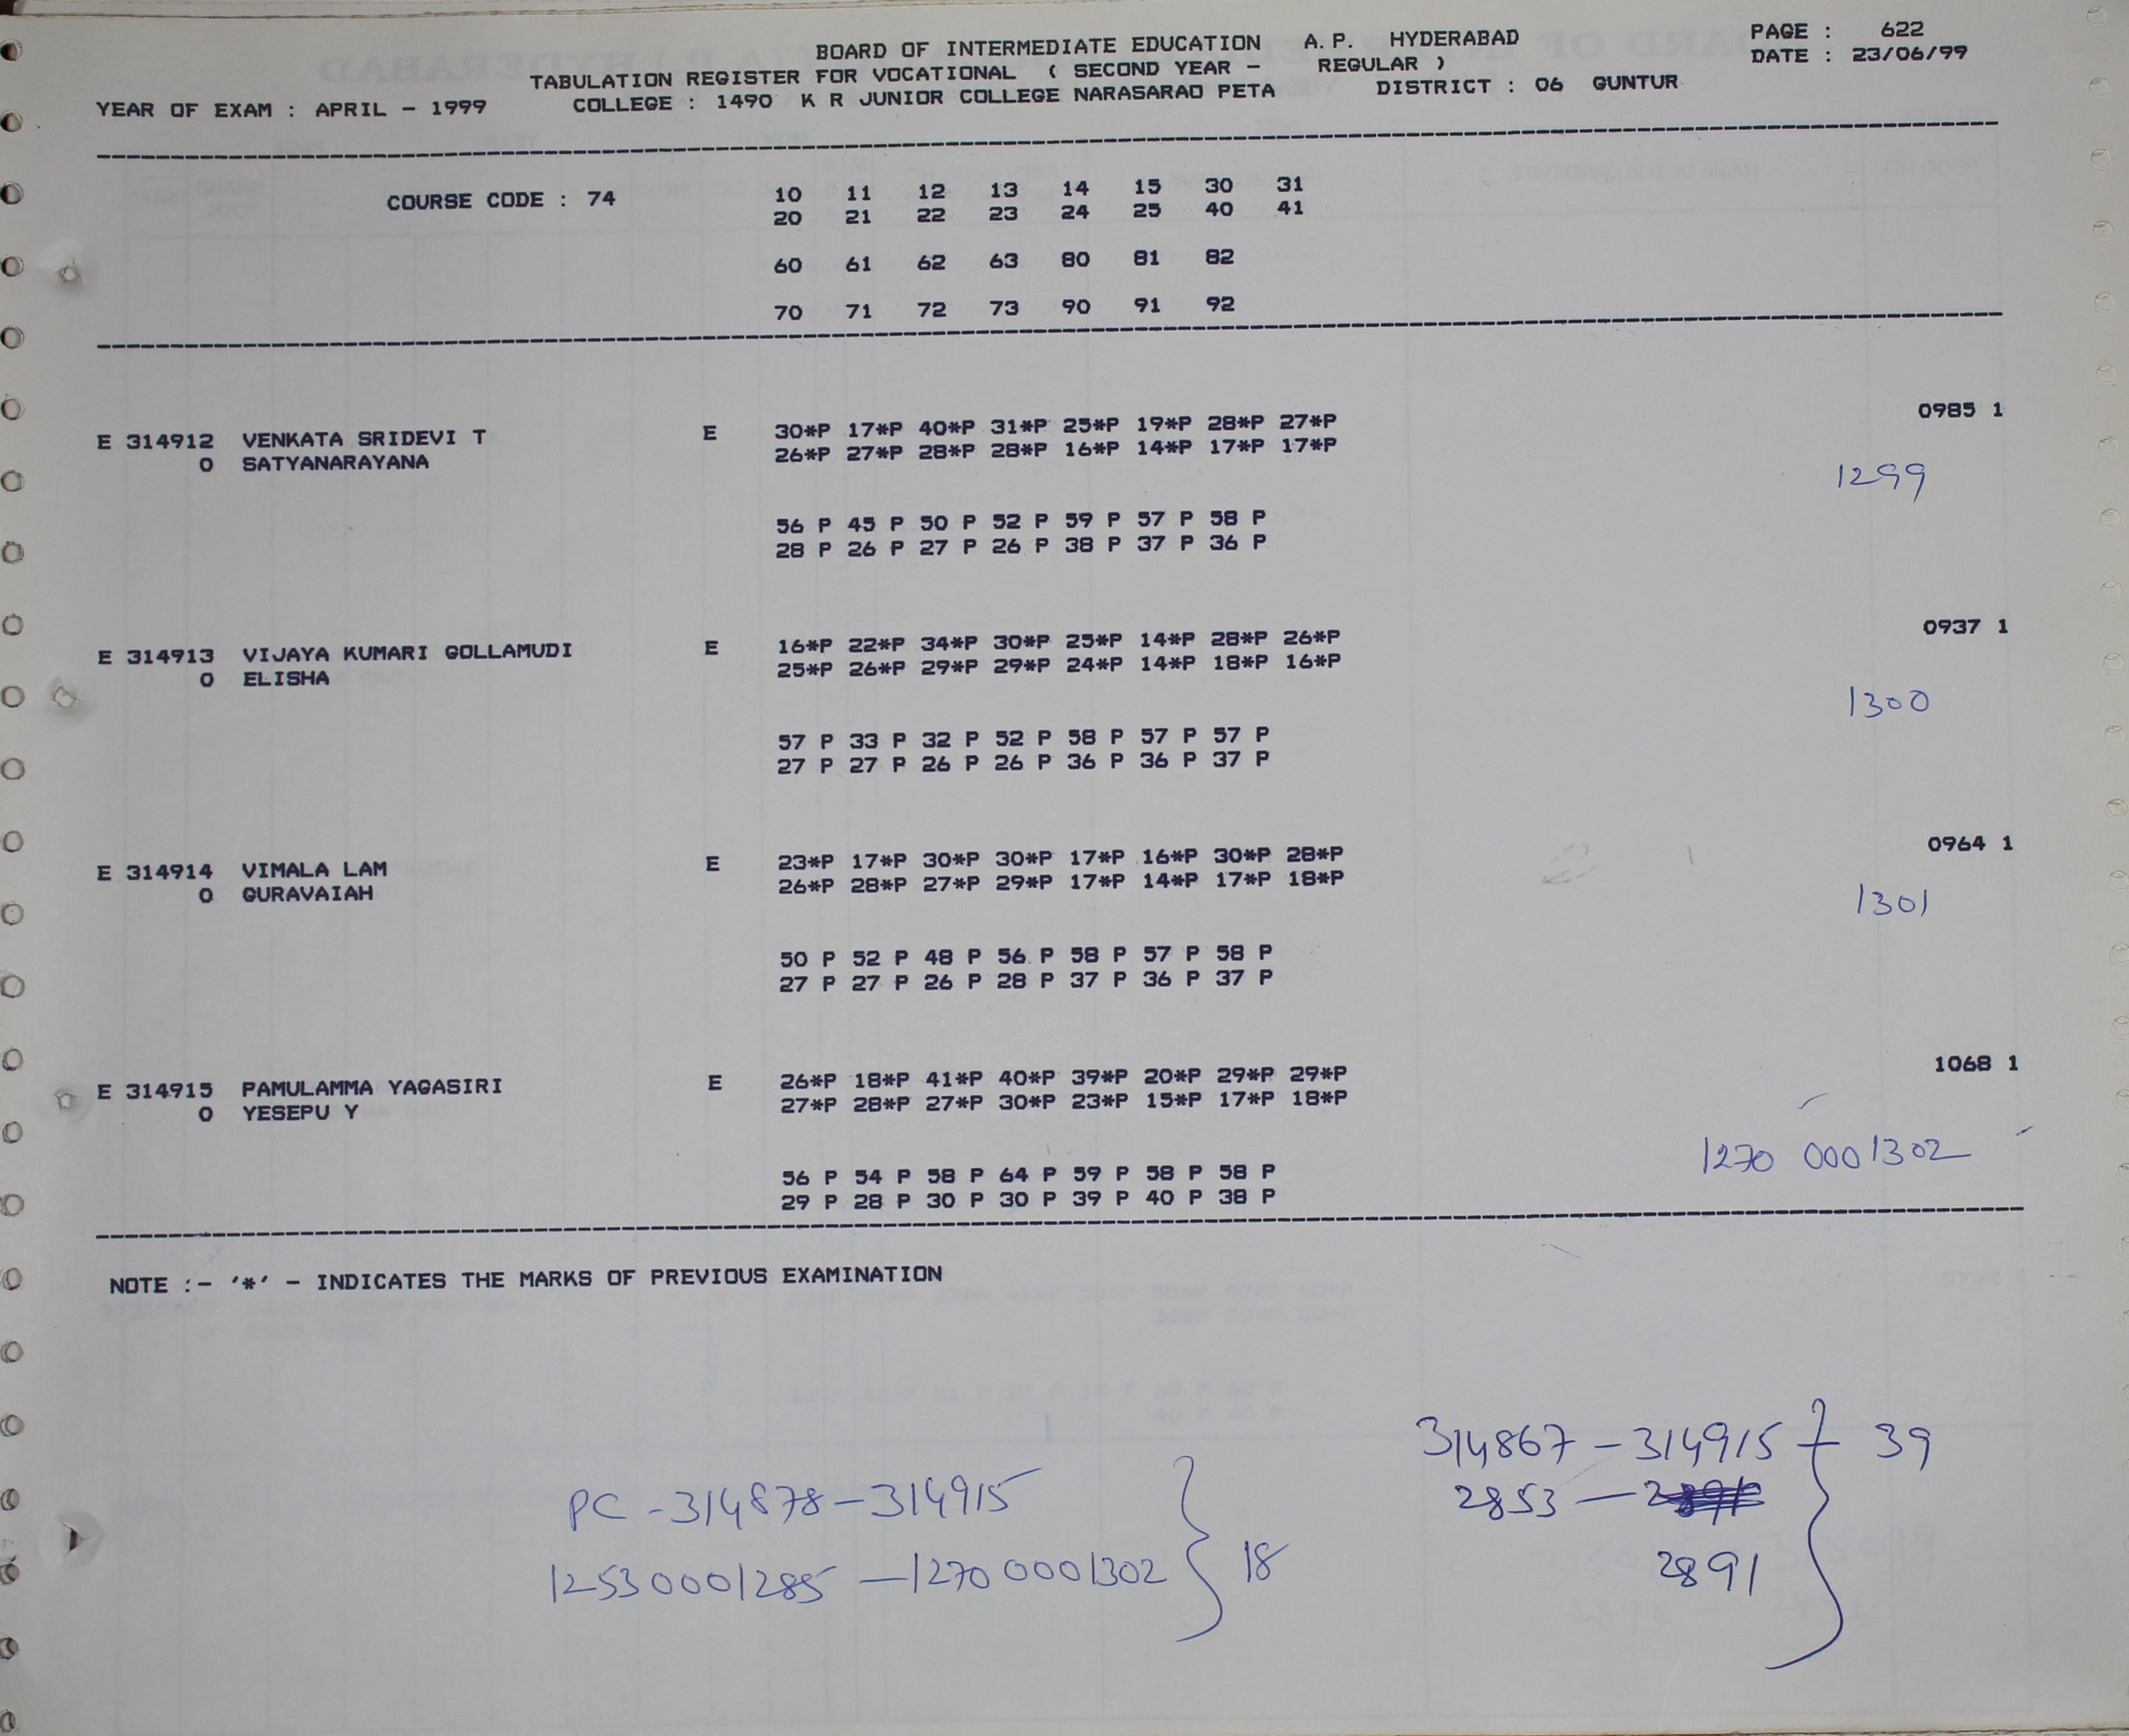 BOARD OF INTERMEDIATE EDUCATION A.P. HYDERABAD PAGE : 622
TABULATION REGISTER FOR VOCATIONAL ( SECOND YEAR - REGULAR ) DATE : 23/06/99
YEAR OF EXAM : APRIL - 1999 COLLEGE : 1490 K R JUNIOR COLLEGE NARASARAO PETA DISTRICT : 06 GUNTUR
COURSE CODE : 74 10 11 12 13 14 15 30 31
20 21 22 23 24 25 40 41
60 61 62 63 80 81 82
70 71 72 73 90 91 92
E 314912 VENKATA SRIDEVI T E 30*P 17*P 40*P 31*P 25*P 19*P 28*P 27*P 0985 1
0 SATYANARAYANA 26*P 27*P 28*P 28*P 16*P 14*P 17*P 17*P
1299
56 P 45 P 50 P 52 P 59 P 57 P 58 P
28 P 26 P 27 P 26 P 38 P 37 P 36 P
E 314913 VIJAYA KUMARI GOLLAMUDI E 16*P 22*P 34*P 30*P 25*P 14*P 28*P 26*P 0937 1
0 ELISHA 25*P 26*P 29*P 29*P 24*P 14*P 18*P 16*P
1300
57 P 33 P 32 P 52 P 58 P 57 P 57 P
27 P 27 P 26 P 26 P 36 P 36 P 37 P
E 314914 VIMALA LAM E 23*P 17*P 30*P 30*P 17*P 16*P 30*P 28*P 0964 1
0 GURAVAIAH 26*P 28*P 27*P 29*P 17*P 14*P 17*P 18*P
1301
50 P 52 P 48 P 56 P 58 P 57 P 58 P
27 P 27 P 26 P 28 P 37 P 36 P 37 P
E 314915 PAMULAMMA YAGASIRI E 26*P 18*P 41*P 40*P 39*P 20*P 29*P 29*P 1068 1
0 YESEPU Y 27*P 28*P 27*P 30*P 23*P 15*P 17*P 18*P
1270 0001302
56 P 54 P 58 P 64 P 59 P 58 P 58 P
29 P 28 P 30 P 30 P 39 P 40 P 38 P
NOTE :- '*' - INDICATES THE MARKS OF PREVIOUS EXAMINATION
314867 - 314915 39
2853 -
2891
PC - 314878 - 314915
1253 0001285 - 1270 0001302 18